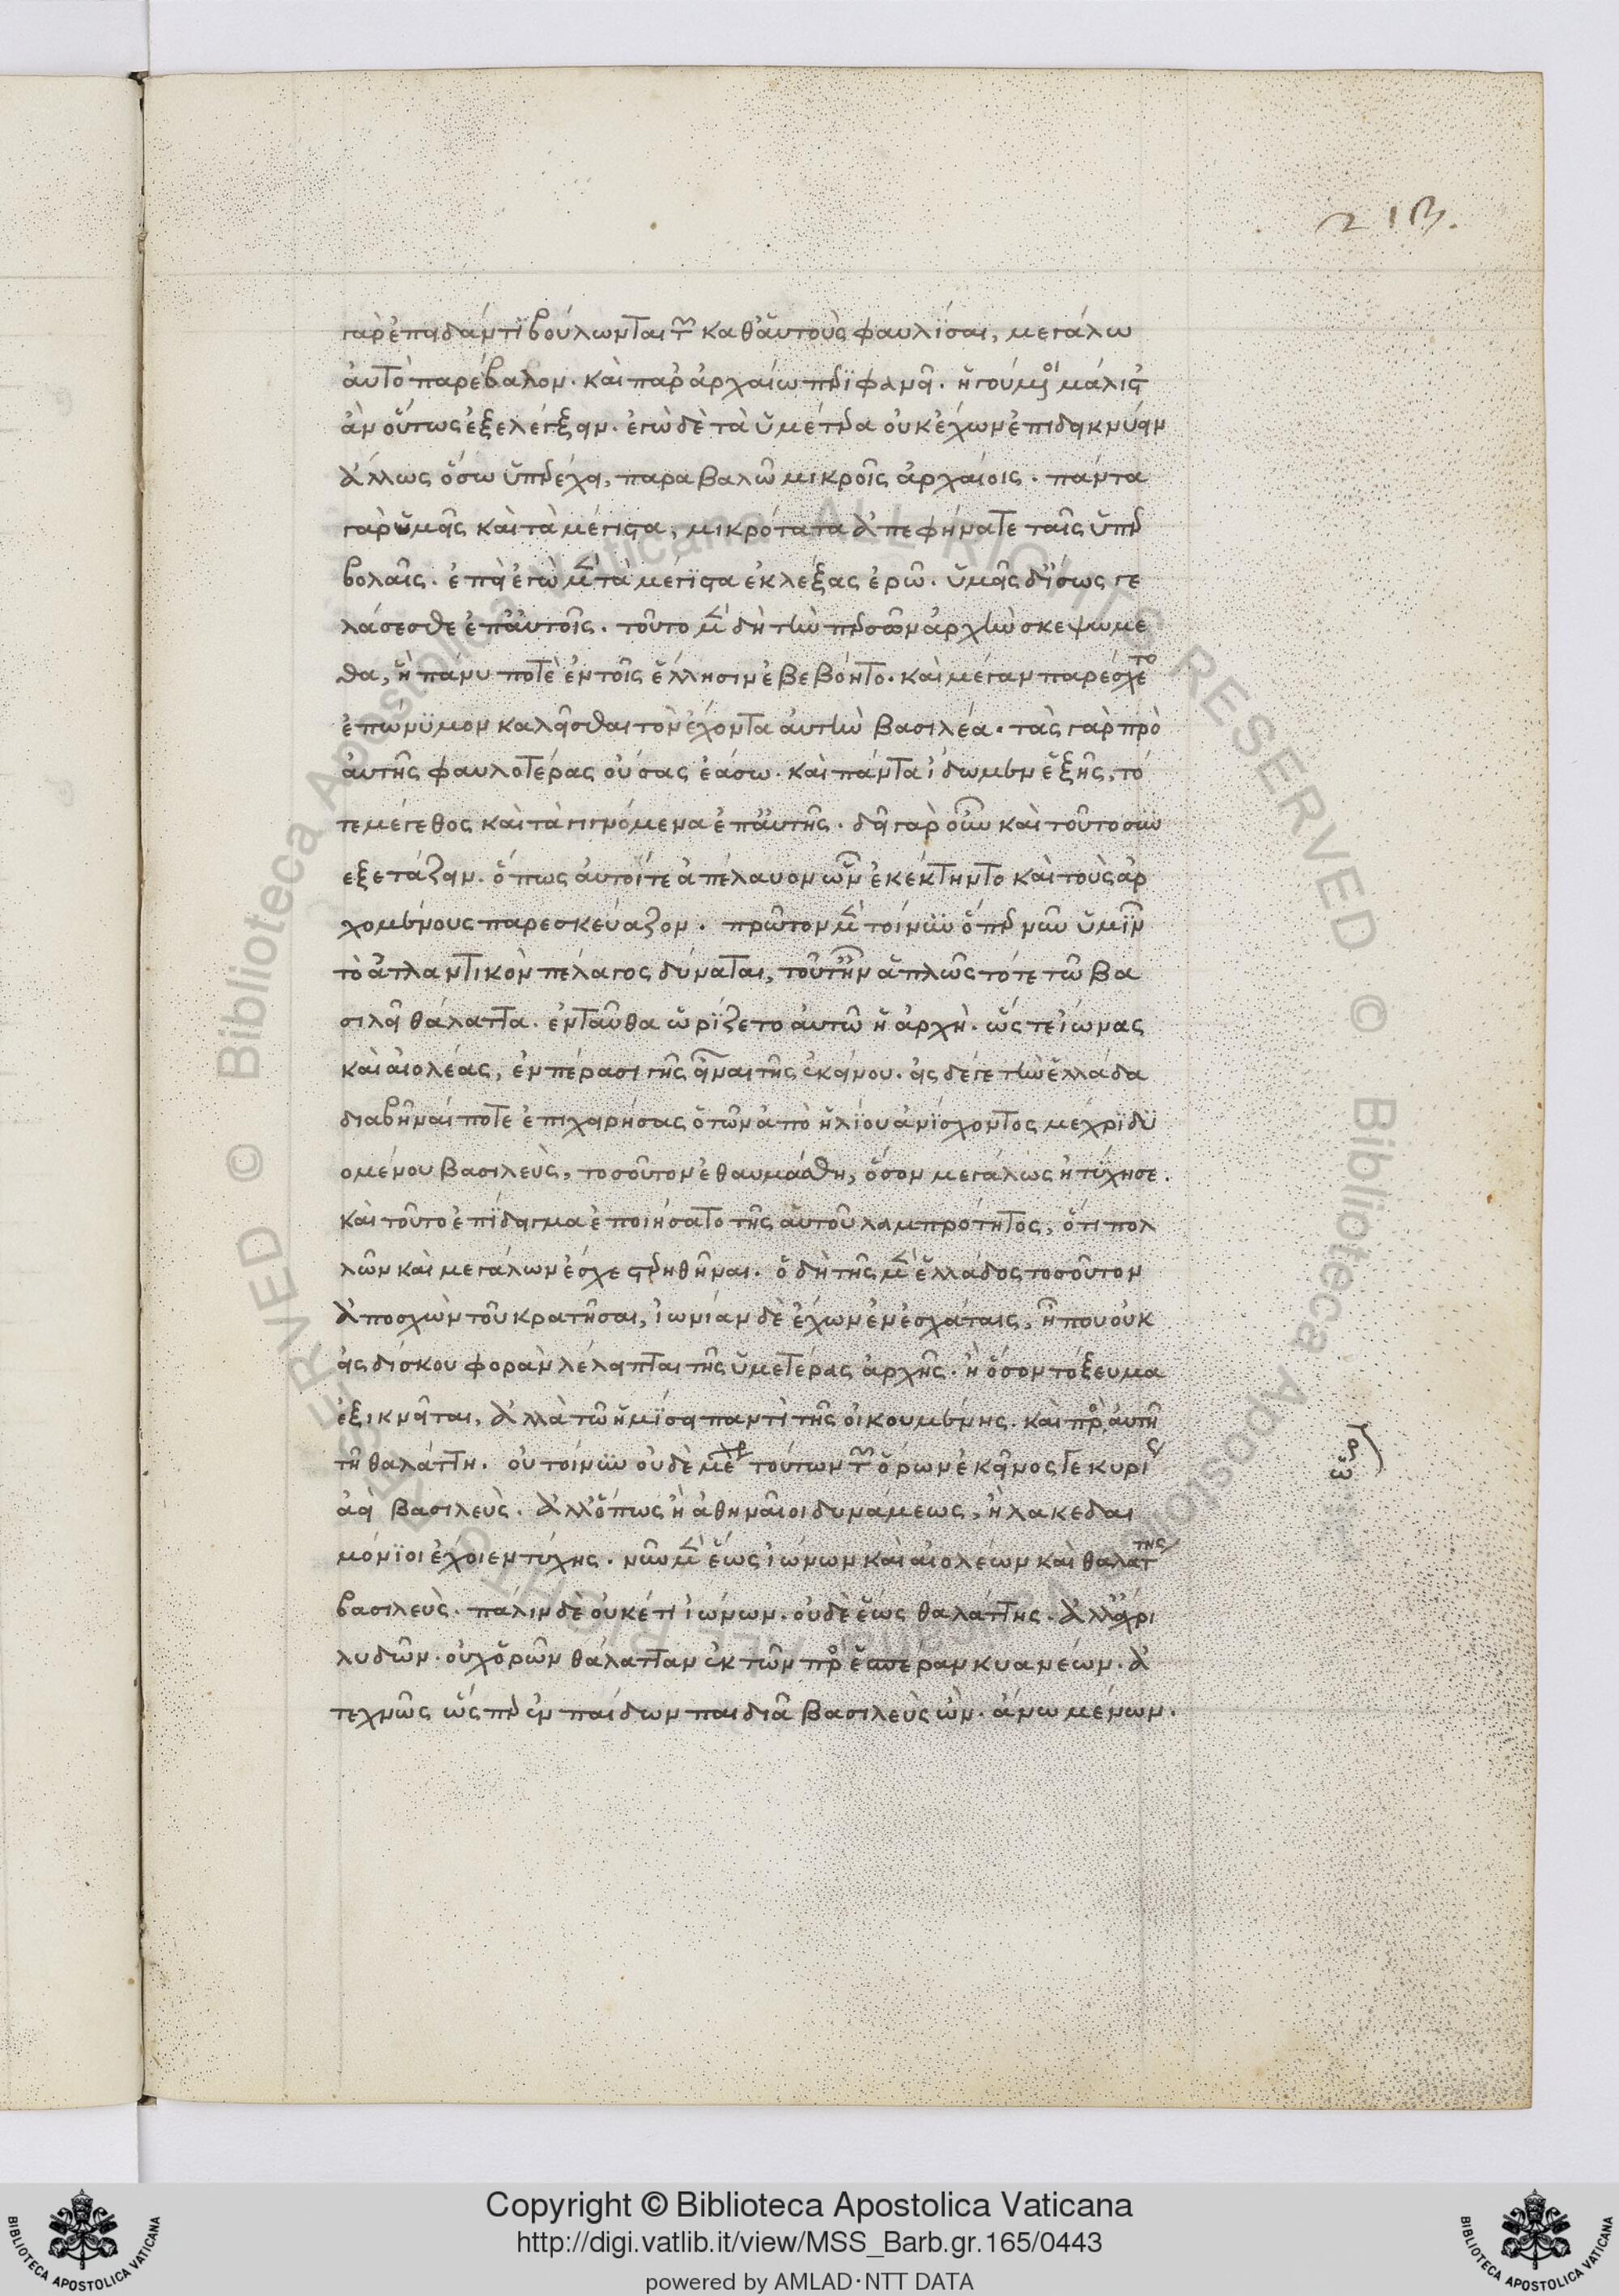 213.
γὰρ ἐπειδάν τι βούλωνται τῶν καθ' αὑτοὺς φαυλίσαι, μεγάλω
αὐτὸ παρέβαλον. καὶ παρ' ἀρχαίω περιφανεῖ. ἡγούμενοι μάλιστ'
ἂν οὕτως ἐξελέγξειν. ἐγὼ δὲ τὰ ὑμέτερα οὐκ ἔχων ἐπιδεικνύειν
ἄλλως ὅσω ὑπερέχει, παραβαλῶ μικροῖς ἀρχαίοις. πάντα
γὰρ ὑμεῖς καὶ τὰ μέγιστα, μικρότατα ἀπεφήνατε ταῖς ὑπερ
βολαῖς. ἐπεὶ ἐγὼ μὲν τὰ μέγιστα ἐκλέξας ἐρῶ. ὑμεῖς δ' ἴσως γε
λάσεσθε ἐπ' αὐτοῖς. τοῦτο μὲν δὴ τὴν περσῶν ἀρχὴν σκεψώμε
θα, ἣ πάνυ ποτὲ ἐν τοῖς ἕλλησιν ἐβεβόητο. καὶ μέγαν παρέσχετο
ἐπώνυμον καλεῖσθαι τὸν ἔχοντα αὐτὴν βασιλέα. τὰς γὰρ πρὸ
αὐτῆς φαυλοτέρας οὔσας ἐάσω. καὶ πάντα ἴδωμεν ἑξῆς, τό
τε μέγεθος καὶ τὰ γιγνόμενα ἐπ' αὐτῆς. δεῖ γὰρ οὖν καὶ τοῦτο συν
εξετάζειν. ὅπως αὐτοί τε ἀπέλαυον ὧν ἐκέκτηντο καὶ τοὺς ἀρ
χομένους παρεσκεύαζον. πρῶτον μὲν τοίνυν ὅπερ νῦν ὑμῖν
τὸ ἀτλαντικὸν πέλαγος δύναται, τοῦτ' ἦν ἁπλῶς τότε τῶ βα
σιλεῖ θάλαττα. ἐνταῦθα ὡρίζετο αὐτῶ ἡ ἀρχή. ὥστε ἴωνας
καὶ αἰολέας, ἐν πέρασι γῆς εἶναι τῆς ἐκείνου. εἰς δέ γε τὴν ἑλλάδα
διαβῆναί ποτε ἐπιχειρήσας ὁ τῶν ἀπὸ ἡλίου ἀνίσχοντος μέχρι δυ
ομένου βασιλεύς, τοσοῦτον ἐθαυμάσθη, ὅσον μεγάλως ἠτύχησε.
καὶ τοῦτο ἐπίδειγμα ἐποιήσατο τῆς αὑτοῦ λαμπρότητος, ὅτι πολ
λῶν καὶ μεγάλων ἔσχε στερηθῆναι. ὁ δὴ τῆς μὲν ἑλλάδος τοσοῦτον
ἀποσχὼν τοῦ κρατῆσαι, ἰωνίαν δὲ ἔχων ἐν ἐσχάταις, ἦ που οὐκ
εἰς δίσκου φορὰν λέλειπται τῆς ὑμετέρας ἀρχῆς. ἢ ὅσον τόξευμα
ἐξικνεῖται, ἀλλὰ τῶ ἡμίσει παντὶ τῆς οἰκουμένης. καὶ πρὸς αὐτῆ
τῆ θαλάττη. οὐ τοίνυν οὐδὲ μέχρι τούτων τῶν ὅρων ἐκεῖνός γε κύριος
ὡρ
ἀεὶ βασιλεύς. ἀλλ' ὅπως ἢ ἀθηναῖοι δυνάμεως, ἢ λακεδαι
μόνιοι ἔχοιεν τύχης. νῦν μὲν ἕως ἰώνων καὶ αἰολέων καὶ θαλάττης
βασιλεύς. πάλιν δὲ οὐκέτι ἰώνων. οὐδὲ ἕως θαλάττης. ἀλλ' ἄχρι
λυδῶν. οὐχ ὁρῶν θάλατταν ἐκ τῶν πρὸς ἑσπέραν κυανέων. ἀ
τεχνῶς ὥσπερ ἐν παίδων παιδιᾶ βασιλεὺς ὤν. ἄνω μένων.
Copyright © Biblioteca Apostolica Vaticana
http://digi.vatlib.it/view/MSS_Barb.gr.165/0443
powered by AMLAD·NTT DATA